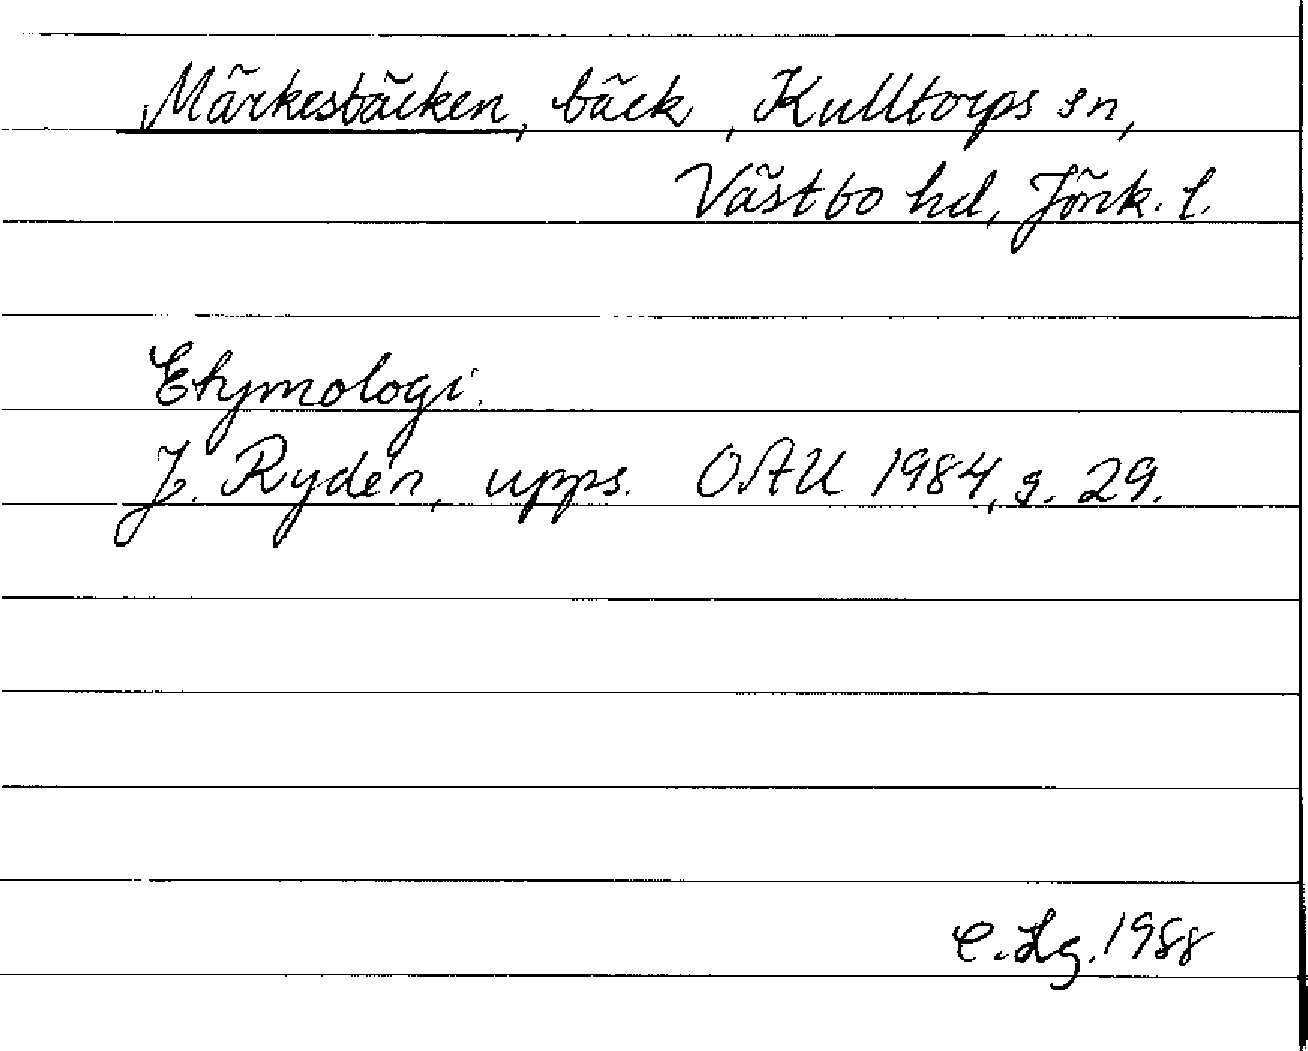 Märkesbäcken, bäck, Kulltorps sn,
Västbo hd, Jönk. l.
Etymologi.
J. Rydén, upps. OAU 1984, s. 29.
C. Lg. 1988